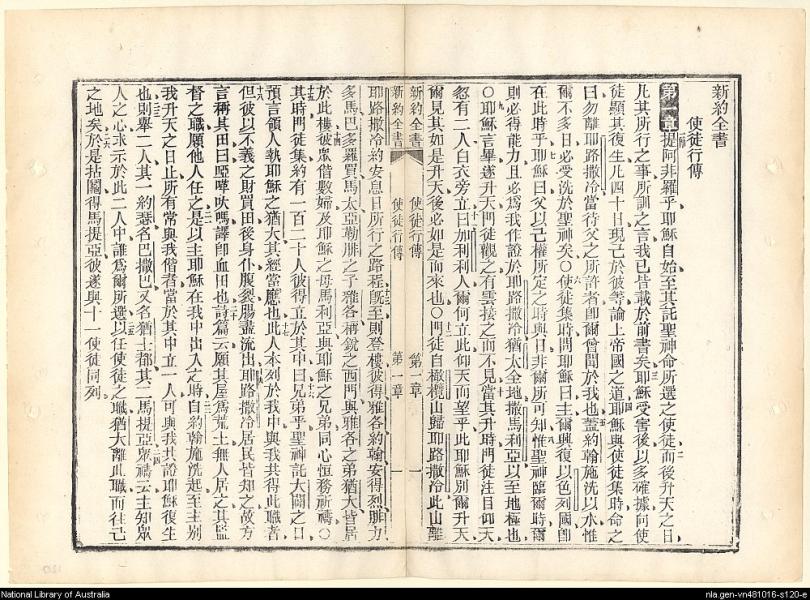 新約全書
使徒行傳
第一章提阿非羅乎耶穌自始至其託聖神命所選之使徒而後升天之日
凡其所行之事所訓之言我已皆載於前書矣耶穌受害後以多確據向使
徒顯其復生凡四十日現己於彼等論上帝國之道耶穌與使徒集時命之
曰勿離耶路撒冷當待父之所許者卽爾曾聞於我也蓋約翰施洗以水惟
爾不多日必受洗於聖神矣○使徒集時問耶穌曰主爾興復以色列國卽
在此時乎耶穌曰父以己權所定之時與日非爾所可知惟聖神臨爾時爾
則必得能力且必爲我作證於耶路撒冷猶太全地撒馬利亞以至地極也
○耶穌言畢遂升天門徒觀之有雲接之而不見當其升時門徒注目仰天
忽有二人白衣旁立曰加利利人爾何立此仰天而望乎此耶穌別爾升天
爾見其如是升天後必如是而來也○門徒自橄欖山歸耶路撒冷此山離
新約全書
使徒行傳
第一章
一
新約全書
使徒行傳
第一章
一
耶路撒冷約安息日所行之路程旣至則登樓彼得雅各約翰安得烈腓力
多馬巴多羅買馬太亞勒腓之子雅各稱銳之西門與雅各之弟猶大皆居
於此樓彼眾偕數婦及耶穌之母馬利亞與耶穌之兄弟同心恒務祈禱○
其時門徒集約有一百二十人彼得立於其中曰兄弟乎聖神託大闢之口
預言領人執耶穌之猶大其經當應也此人本列於我中與我共得此職者
但彼以不義之財買田後身仆腹裂腸盡流出耶路撒冷居民皆知之故方
言稱其田曰啞嗶吠嗎譯卽血田也詩篇云願其屋爲荒土無人居之其監
督之職願他人任之是以主耶穌在我中出入之時自約翰施洗起至主別
我升天之日止所有常與我偕者當於其中立一人可與我共證耶穌復生
也則舉二人其一約瑟名巴撒巴又名猶士都其二馬提亞眾禱云主知眾
人之心求示於此二人中誰爲爾所選以任使徒之職猶大離此職而往己
之地矣於是拈鬮得馬提亞彼遂與十一使徒同列
National Library of Australia
nla.gen-vn481016-s120-e